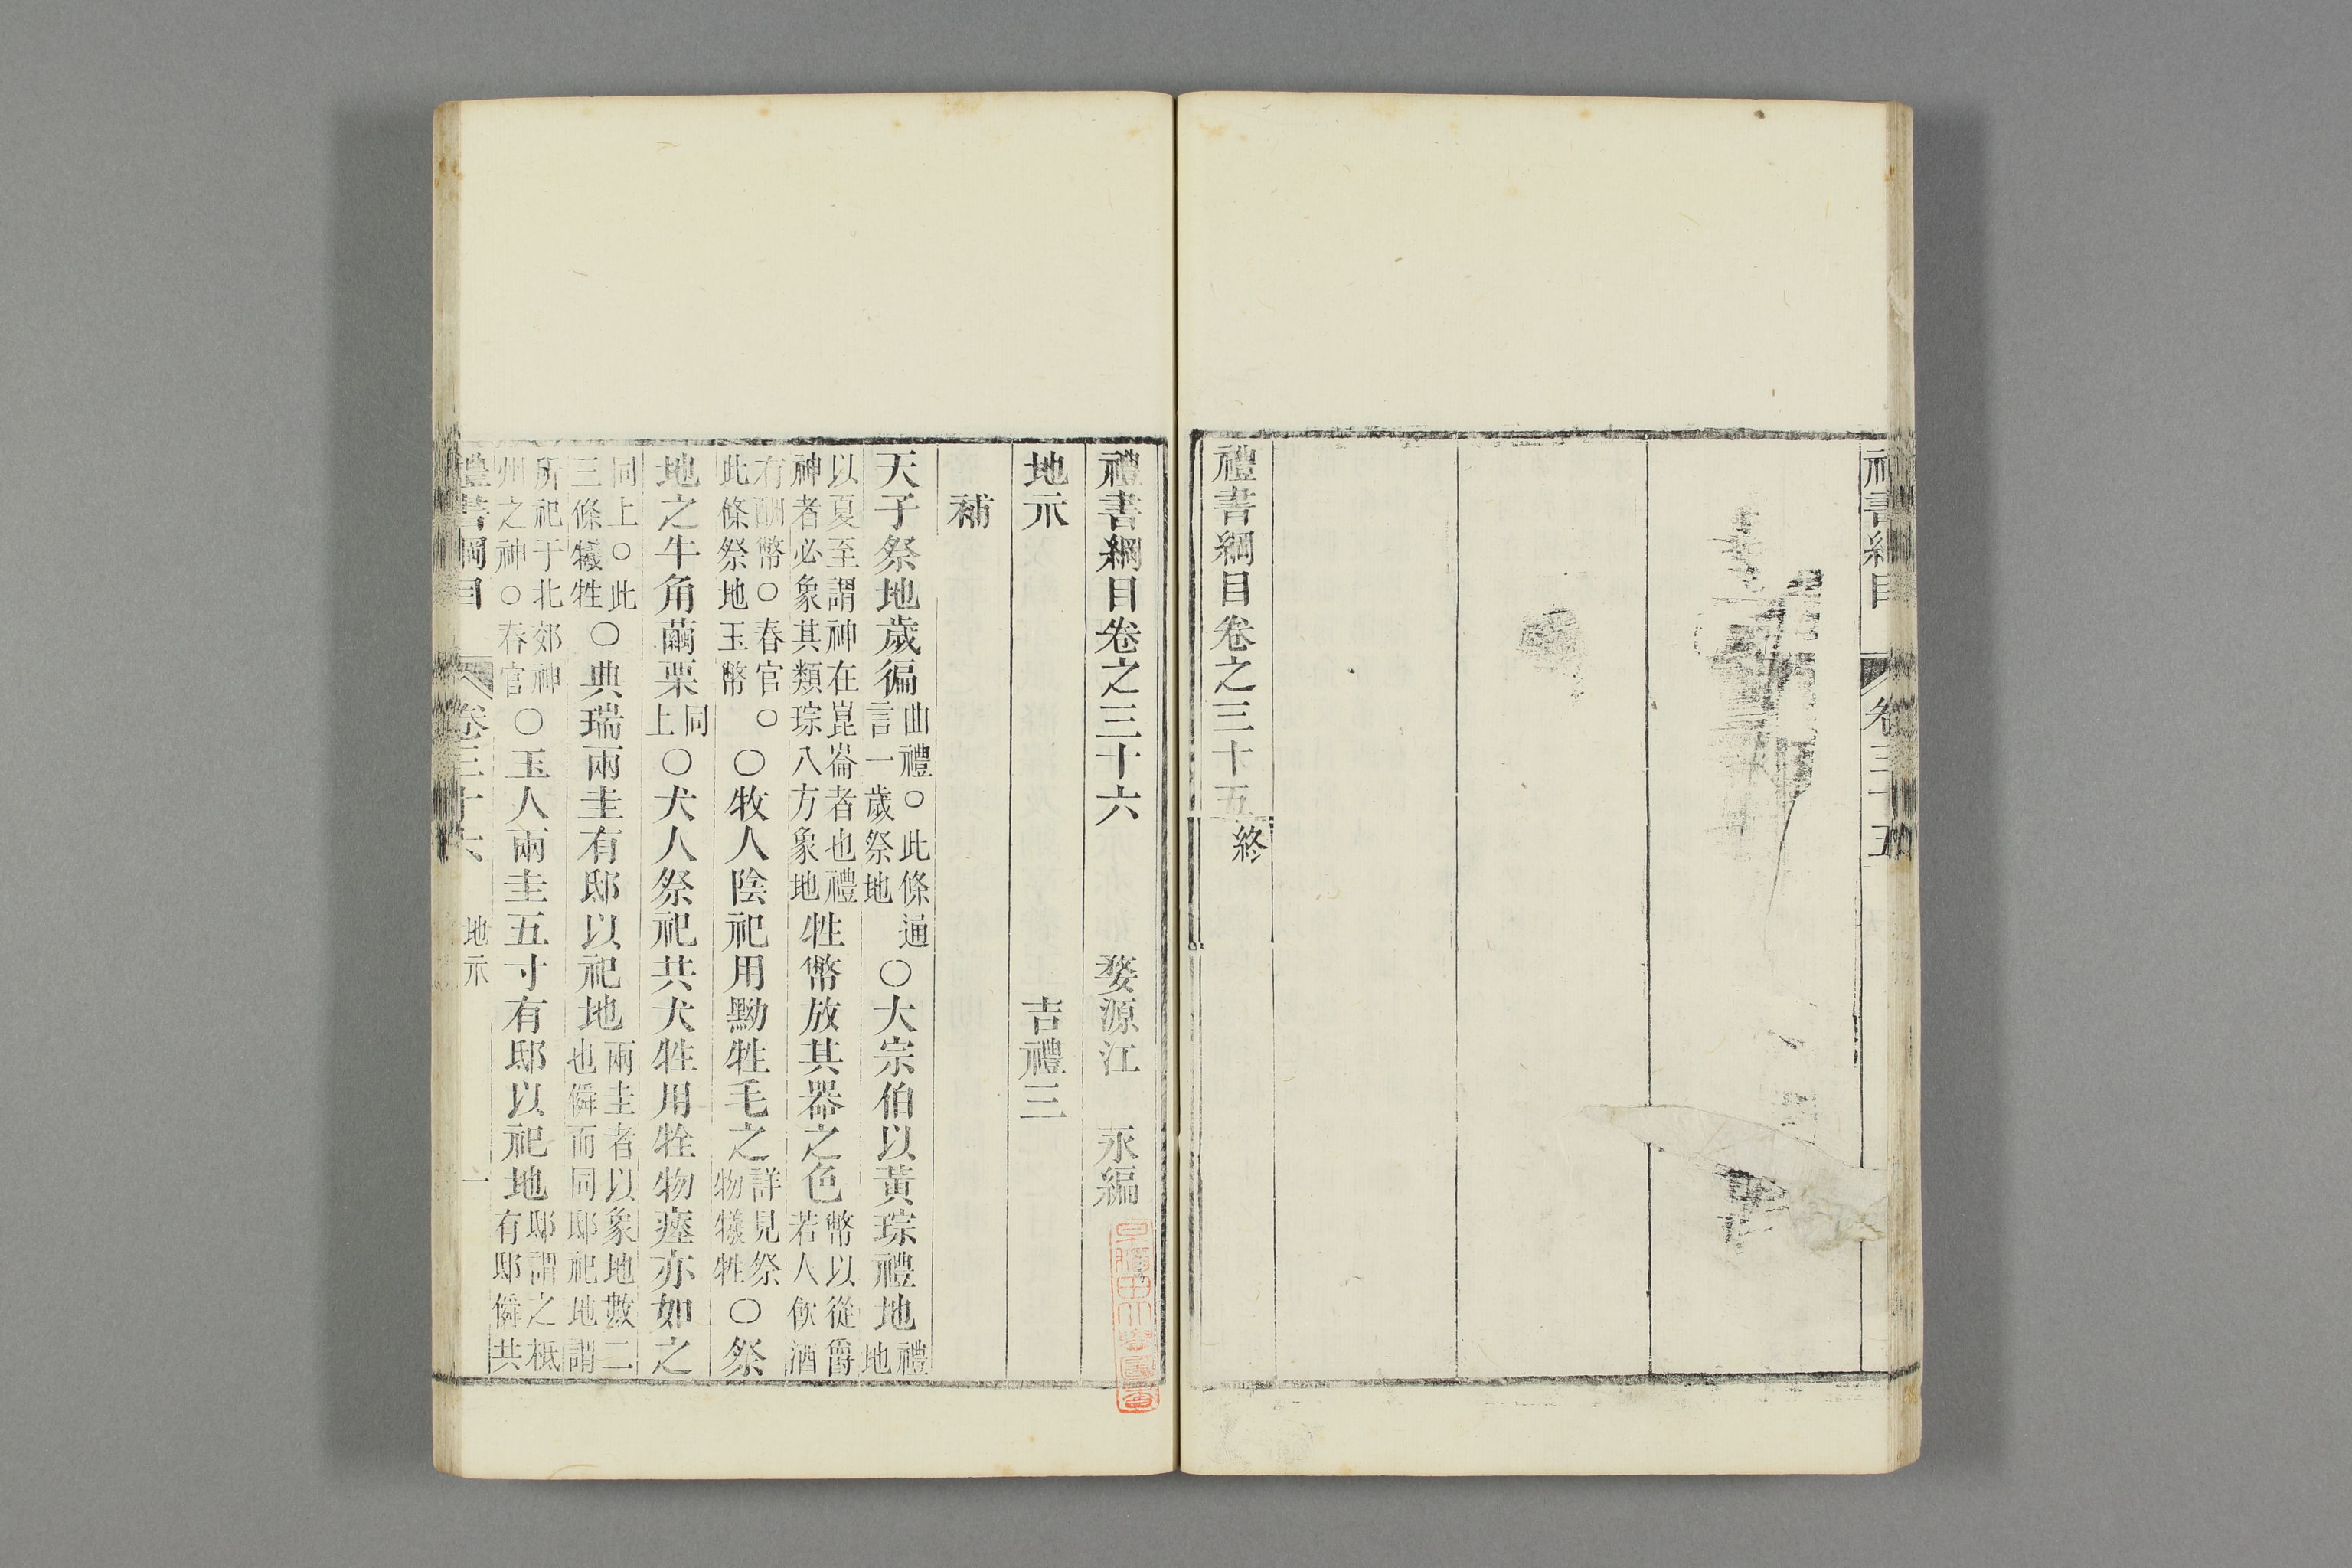 禮書綱目 卷三十五
禮書綱目卷之三十五終
禮書綱目卷之三十六 婺源江 永編
地示 吉禮三
補
天子祭地歲徧曲禮○此條通言一歲祭地○大宗伯以黃琮禮地禮地
以夏至謂神在崑崙者也禮神者必象其類琮八方象地牲幣放其器之色幣以從爵若人飲酒
有酬幣○春官○此條祭地玉幣○牧人陰祀用黝牲毛之詳見祭物犧牲○祭
地之牛角繭栗同上○犬人祭祀共犬牲用牷物瘞亦如之
同上○此三條犧牲○典瑞兩圭有邸以祀地兩圭者以象地數二也僢而同邸祀地謂
所祀于北郊神州之神○春官○玉人兩圭五寸有邸以祀地邸謂之柢有邸僢共
禮書綱目 卷三十六 地示 一
早稻田大學圖書